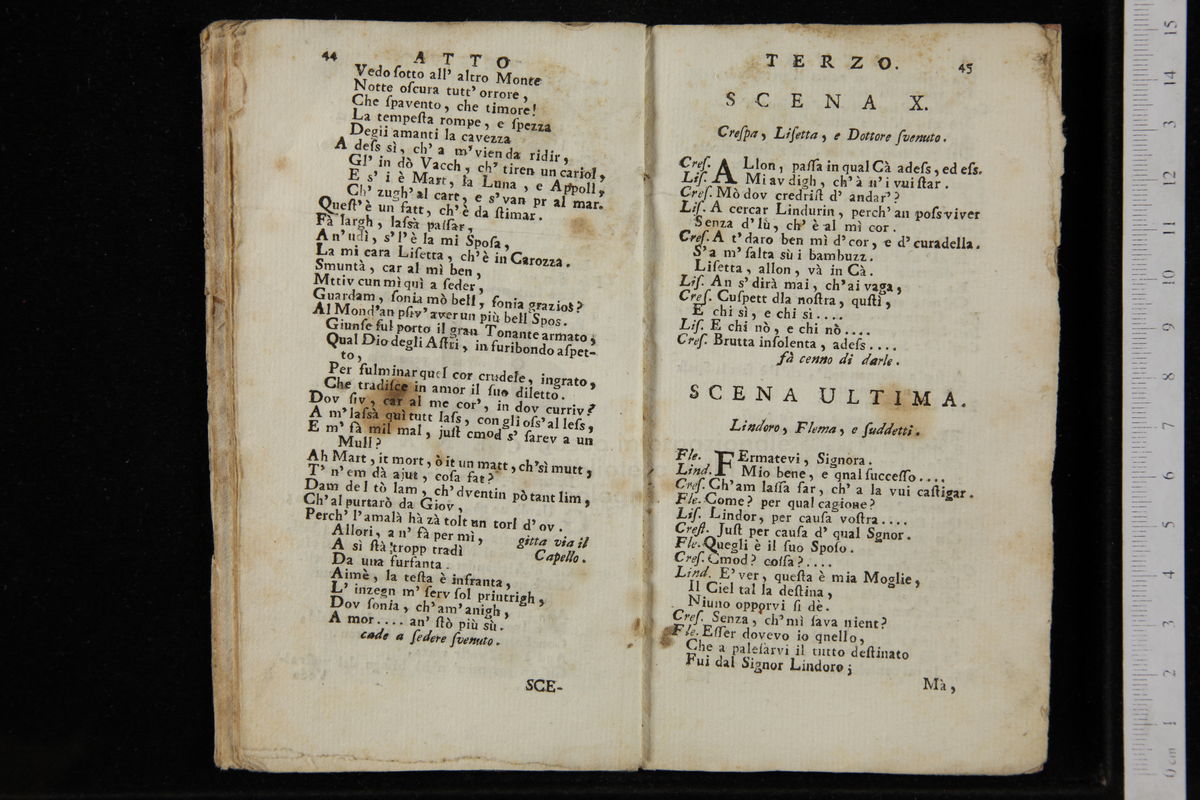 44 ATTO
Vedo ſotto all' altro Monte
Notte oſcura tutt' orrore,
Che ſpavento, che timore!
La tempeſta rompe, e ſpezza
Degii amanti la cavezza
A deſs sì, ch' a m'vien da ridir,
Gl' in dò Vacch, ch' tiren un cariol,
E s' i è Mart, la Luna, e Appoll,
Ch' zugh' al cart, e s'van pr al mar.
Queſt' è un fatt, ch' è da ſtimar.
Fà largh, laſsà paſſar,
An'udì, s'l'è la mi Spoſa,
La mi cara Liſetta, ch'è in Carozza.
Smuntà, car al mì ben,
Mttiv cun mì quì a ſeder,
Guardam, ſonia mò bell, ſonia grazios?
Al Mond'an pſiv' aver un più bell Spos.
Giunſe ful porto il gran Tonante armato;
Qual Dio degli Aſtri, in furibondo aſpet-
to,
Per fulminar quel cor crudele, ingrato,
Che tradiſce in amor il ſuo diletto.
Dov ſiv, car al me cor', in dov curriv?
A m'laſsà quì tutt laſs, con gli oſs' al leſs,
E m' fà mil mal, juſt cmod s' ſarev a un
Mull?
Ah Mart, it mort, ò it un matt, ch'sì mutt,
T' n'em dà ajut, coſa fat?
Dam de l tò lam, ch'dventin pò tant lim,
Ch'al purtarò da Giov,
Perch' l'amalà hà zà tolt un torl d'ov.
Allori, a n' fà per mì, gitta via il
A sì ſtà tropp tradì Capello.
Da una furfanta.
Aimè, la teſta è infranta,
L' inzegn m' ſerv ſol printrigh,
Dov ſonia, ch'am'anigh,
A mor.... an' ſtò più sù.
cade a ſedere ſvenuto.
SCE-
TERZO. 45
SCENA X.
Creſpa, Liſetta, e Dottore ſvenuto.
Creſ. ALlon, paſſa in qual Cà adeſs, ed eſs.
Liſ. Mi av digh, ch'à n'i vui ſtar.
Creſ. Mò dov credriſt d' andar'?
Liſ. A cercar Lindurin, perch' an poſs viver
Senza d'lù, ch' è al mì cor.
Creſ. A t'daro ben mì d'cor, e d' curadella.
S'a m'ſalta sù i bambuzz.
Liſetta, allon, và in Cà.
Liſ. An s'dirà mai, ch'ai vaga,
Creſ. Cuſpett dla noſtra, quſti,
E chi sì, e chi sì....
Liſ. E chi nò, e chi nò....
Creſ. Brutta inſolenta, adeſs....
fà cenno di darle.
SCENA ULTIMA.
Lindoro, Flema, e ſuddetti.
Fle. FErmatevi, Signora.
Lind. Mio bene, e qnal ſucceſſo....
Creſ. Ch'am laſſa far, ch' a la vui caſtigar.
Fle. Come? per qual cagione?
Liſ. Lindor, per cauſa voſtra....
Creſt. Juſt per cauſa d' qual Sgnor.
Fle. Quegli è il ſuo Spoſo.
Creſ. Cmod? coſſa?....
Lind. E'ver, queſta è mia Moglie,
Il Ciel tal la deſtina,
Niuno opporvi ſi dè.
Creſ. Senza, ch'mì ſava nient?
Fle. Eſſer dovevo io qnello,
Che a paleſarvi il tutto deſtinato
Fui dal Signor Lindoro;
Mà,